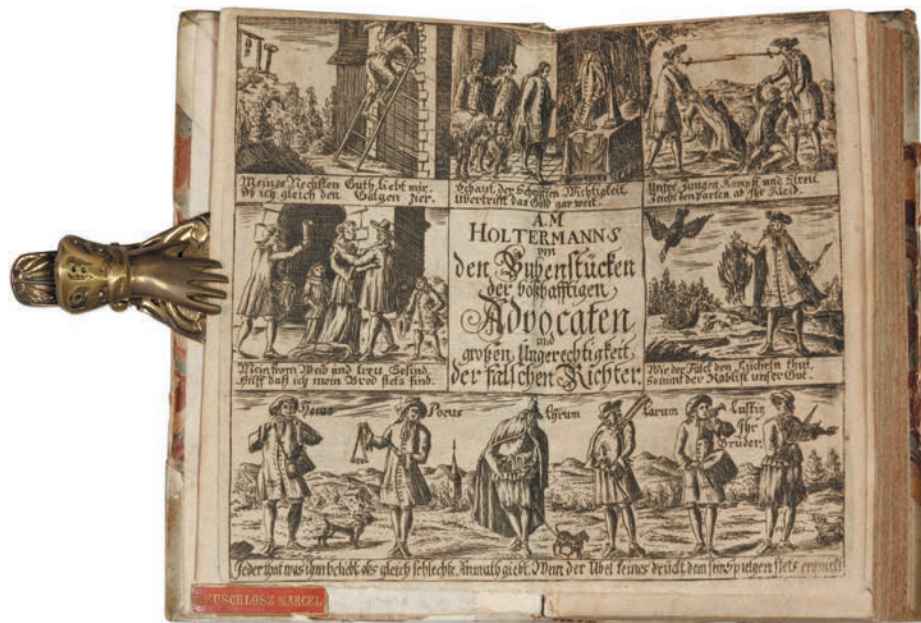 Meines Nechsten Guth liebt mir.
Ob ich gleich den Galgen zier.
Schaut, der Schrifften Wichtigkeit
übertrifft das Gold gar weit.
Unsre Zungen Kampff und Streit
Zieht den Parten ab Ihr Kleid.
A.M
HOLTERMANNS
von
den Bubenstücken
der boßhafftigen
Advocaten
und
großen Ungerechtigkeit,
der falschen Richter.
Mein from Weib und treu Gesind,
Hilff daß ich mein Brod stets find.
Wie der Falck den Kücheln thut,
So nimt der Rablist unser Gut.
Nouus
Porus
thrum
Larum
Lustig
Ihr
Brüder.
Jeder thut was ihm beliebt obs gleich schlechte Anmuth giebt. Wem der Übel keines drückt dem sein
EUSCHLOSZ MARCEL